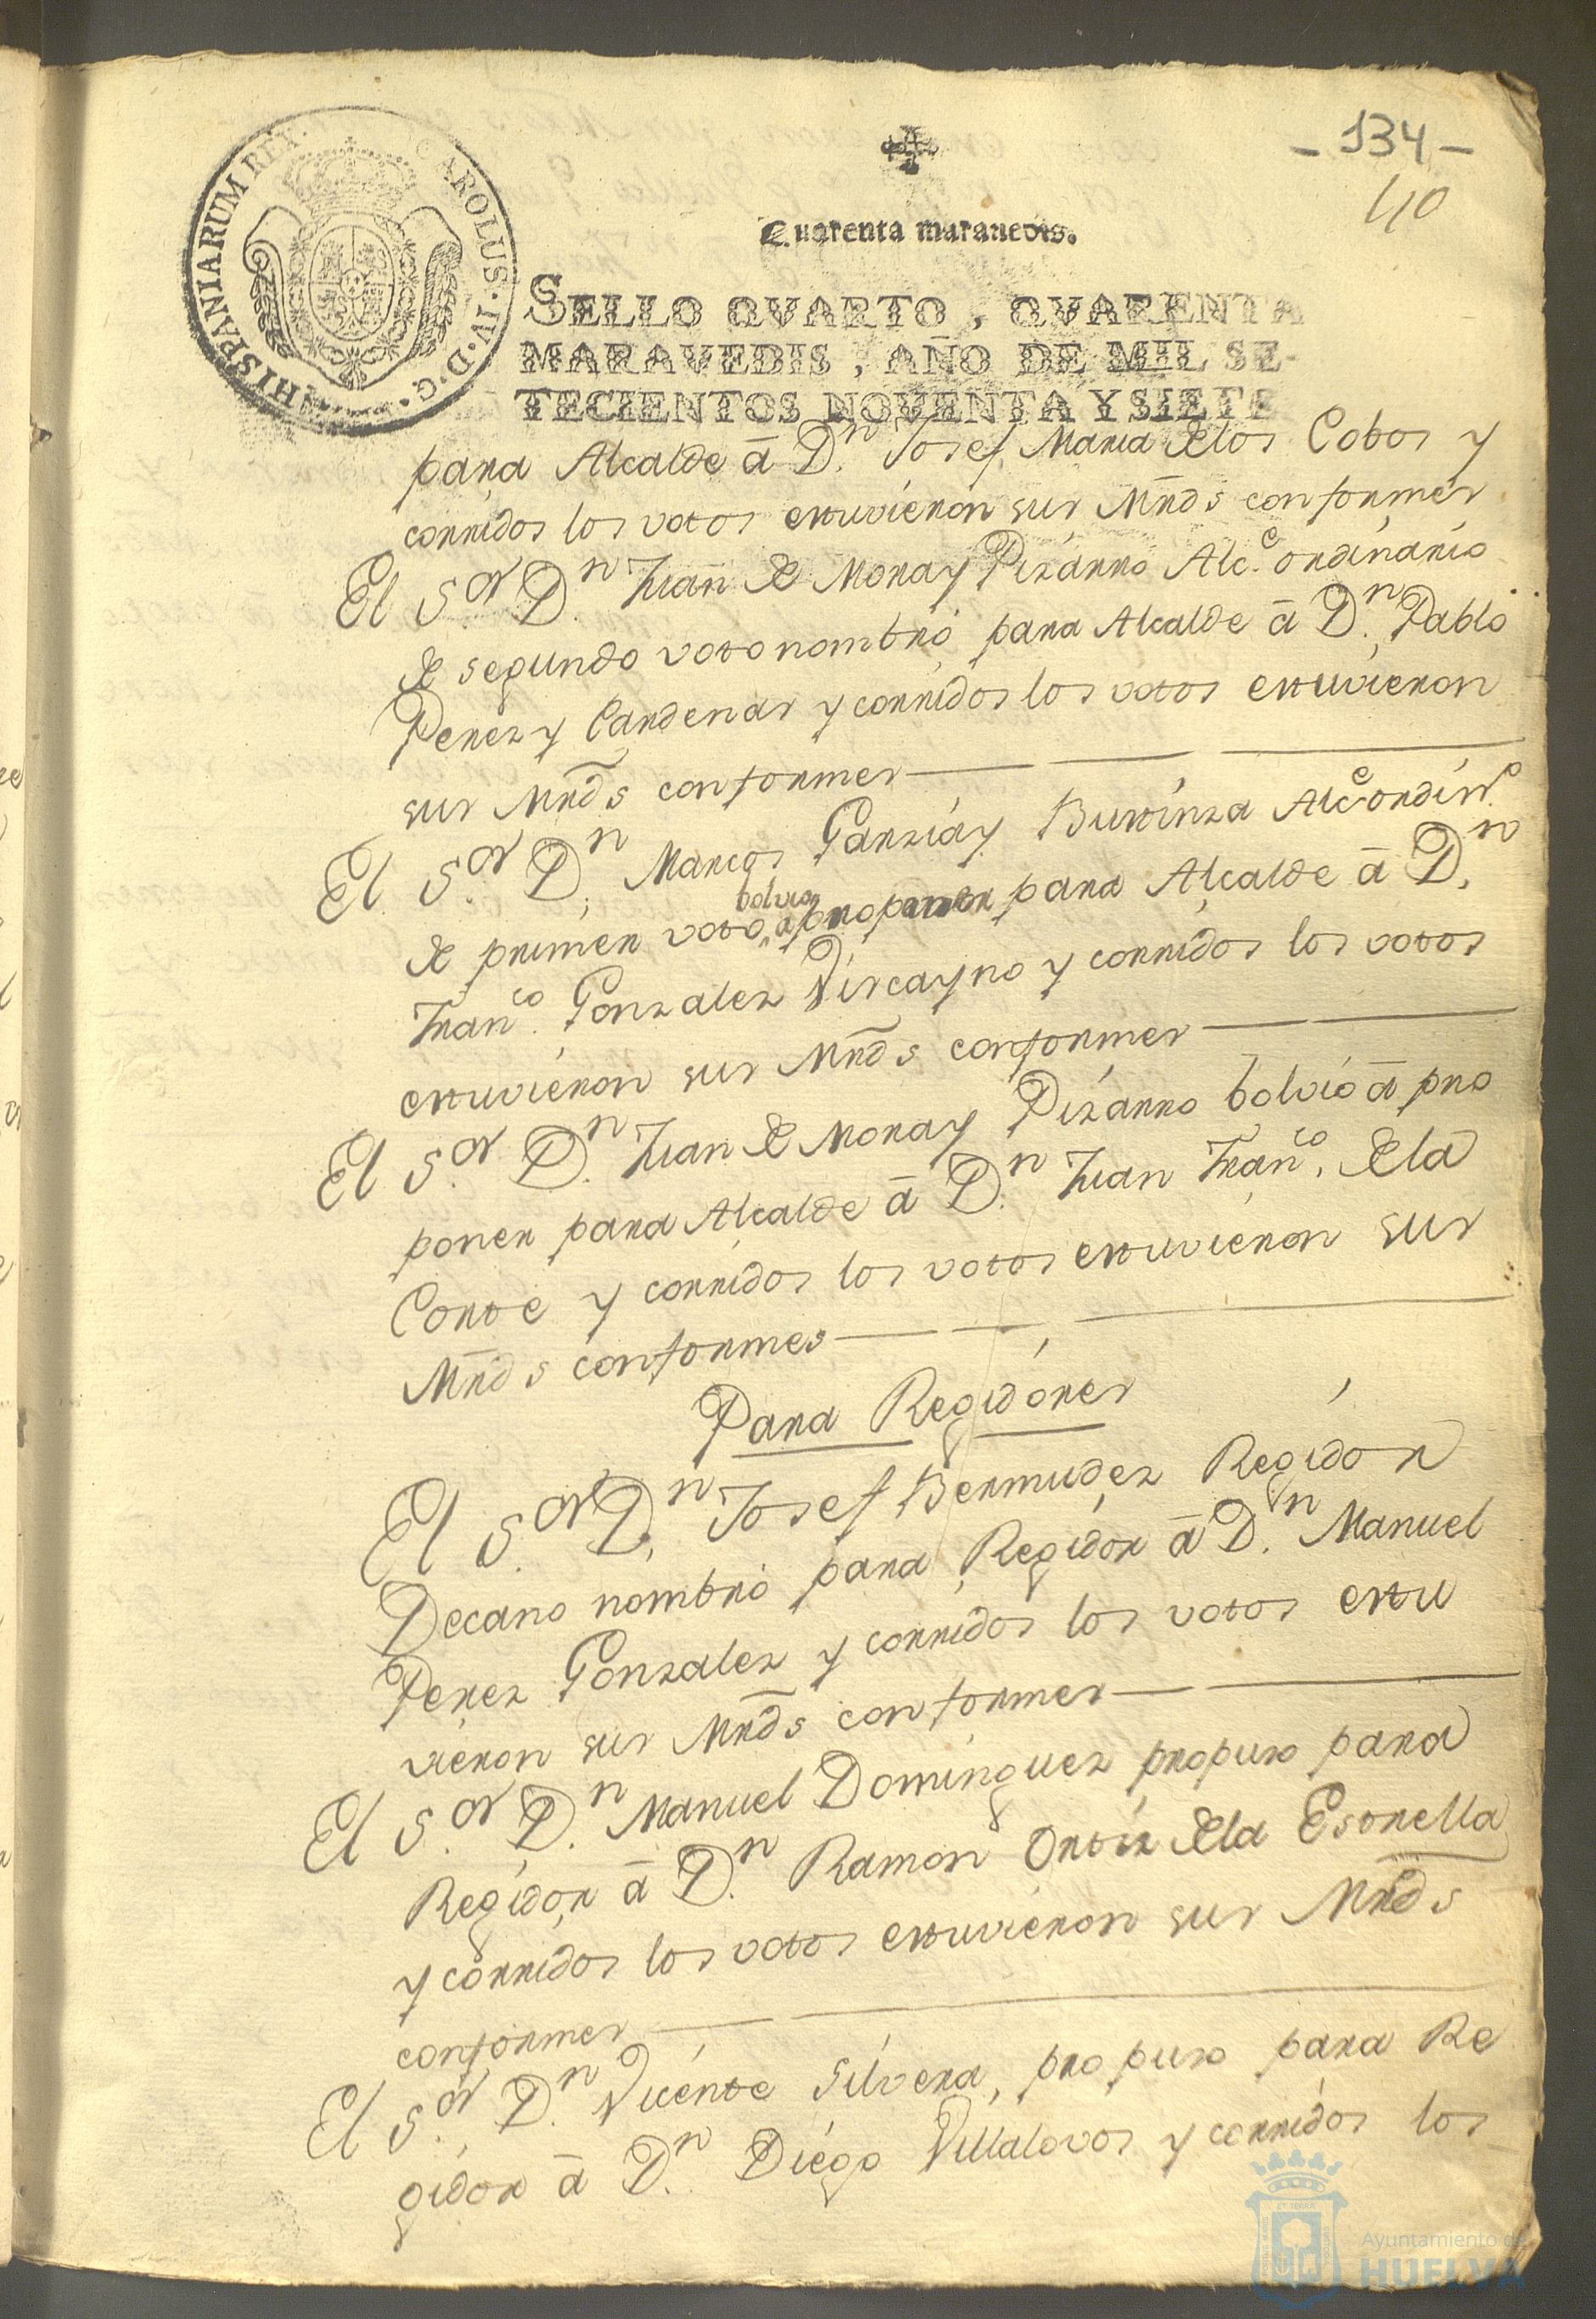 - 134 -
40
HISPANIARUM REX · CAROLUS · IV · D · G ·
Quarenta maravedis.
SELLO QVARTO, QVARENTA
MARAVEDIS, AÑO DE MIL SE-
TECIENTOS NOVENTA Y SIETE
para Alcalde â D.n Josef Maria de los Cobos y
corridos los votos estuvieron sus Mrds conformes
El S.or D.n Juan de Mora y Pizarro Alc.e ordinario
de segundo voto nombró para Alcalde â D.n Pablo
Perez y Cardenas y corridos los votos estuvieron
sus Mrds conformes
El S.or D.n Marcos Garzia y Bustinza Alc.e ordin.o
de primer voto bolvio a proponer para Alcalde â D.n
Fran.co Gonzalez Viscayno y corridos los votos
estuvieron sus Mrds conformes
El S.or D.n Juan de Mora y Pizarro bolvio â pro
poner para Alcalde â D.n Juan Fran.co de la
Corte y corridos los votos estuvieron sus
Mrds conformes
Para Regidores
El S.or D.n Josef Bermudez Regidor
Decano nombró para Regidor â D.n Manuel
Perez Gonzalez y corridos los votos estu
vieron sus Mrds conformes
El S.or D.n Manuel Dominguez propuso para
Regidor â D.n Ramon Ortiz de la Estrella
y corridos los votos estuvieron sus Mrds
conformes
El S.or D.n Vicente Silvera, propuso para Re
gidor â D.n Diego Villalovos y corridos los
Ayuntamiento de
HUELVA